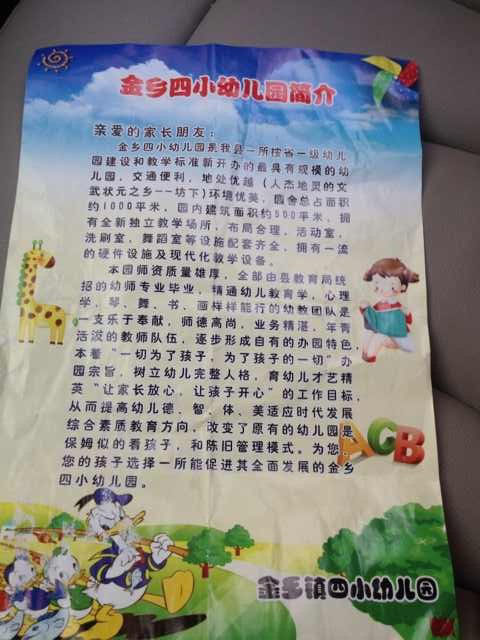 金乡四小幼儿园简介
亲爱的家长朋友：
金乡四小幼儿园是我县一所按省一级幼儿
园建设和教学标准新开办的最具有规模的幼
儿园，交通便利，地处优越（人杰地灵的文
武状元之乡--坊下）环境优美，园舍总占面积
约1000平米，园内建筑面积约500平米，拥
有全新独立教学场所，布局合理，活动室，
洗刷室，舞蹈室等设施配套齐全，拥有一流
的硬件设施及现代化教学设备。
本园师资质量雄厚，全部由县教育局统
招的幼师专业毕业，精通幼儿教育学，心理
学，琴、舞、书、画样样能行的幼教团队是
一支乐于奉献，师德高尚，业务精湛，年青
活泼的教师队伍，逐步形成自有的办园特色，
本着“一切为了孩子，为了孩子的一切”办
园宗旨，树立幼儿完整人格，育幼儿才艺精
英“让家长放心，让孩子开心”的工作目标，
从而提高幼儿德、智、体、美适应时代发展
综合素质教育方向，改变了原有的幼儿园是
保姆似的看孩子，和陈旧管理模式。为您，
您的孩子选择一所能促进其全面发展的金乡
四小幼儿园。
ACB
金乡镇四小幼儿园